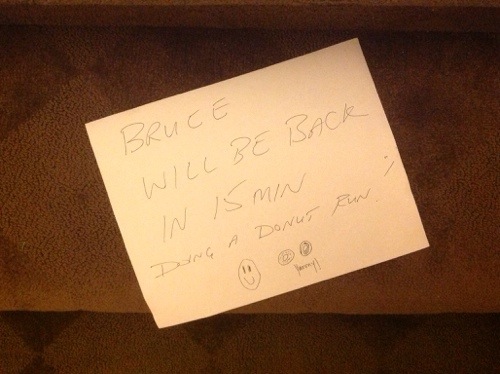 BRUCE
WILL BE BACK
IN 15 MIN
DOING A DONUT RUN.
Yummy!